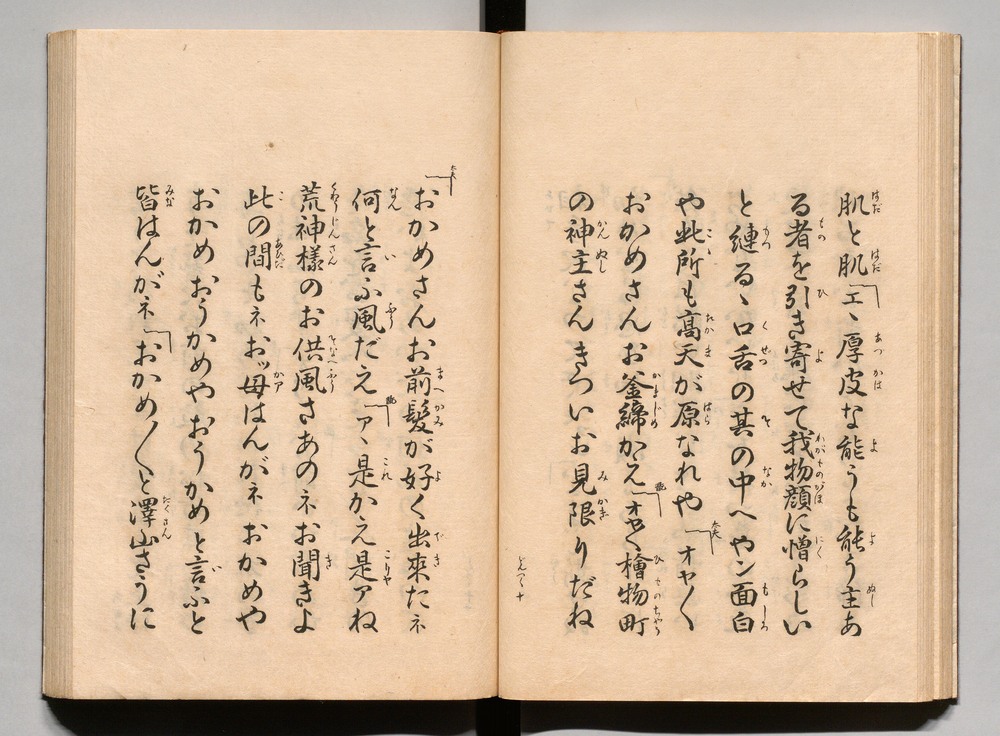 肌と肌「エヽ厚皮な能うも能う主あ
る者を引き寄せて我物顔に憎らしい
と縺るヽ口舌の其の中へヤン面白
や此所も髙天が原なれや「オヤ〱
おかめさんお釜締かえ「オヤ〱檜物町
の神主さんきついお見限りだね
「おかめさんお前髪が好く出來たネ
何と言ふ風だえ「アヽ是かえ是アね
荒神様のお供風さあのネお聞きよ
此の間もネおッ母はんがネおかめや
おかめおうかめやおうかめと言ふと
皆はんがネ「おかめ〱と澤山さうに